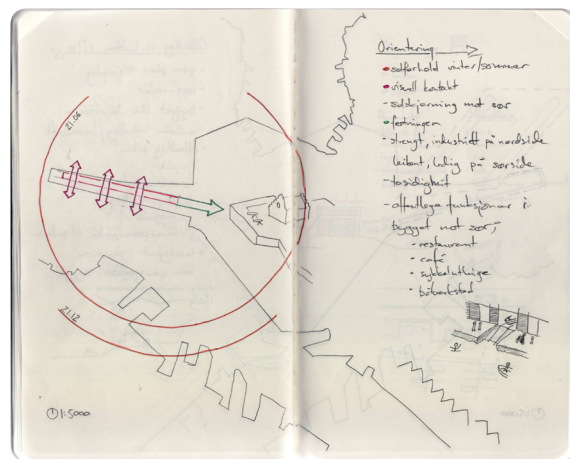 21.06
21.12
1:5000
Orientering
• solforhold vinter/sommer
• visuell kontakt
- solskjerming mot sør
• festningen
- strengt, industrielt på nordside
leikent, ledig på sørside
- tosidighet
- offentlege funksjonar i
bygget mot sør;
- restaurant
- café
- sykkelutleige